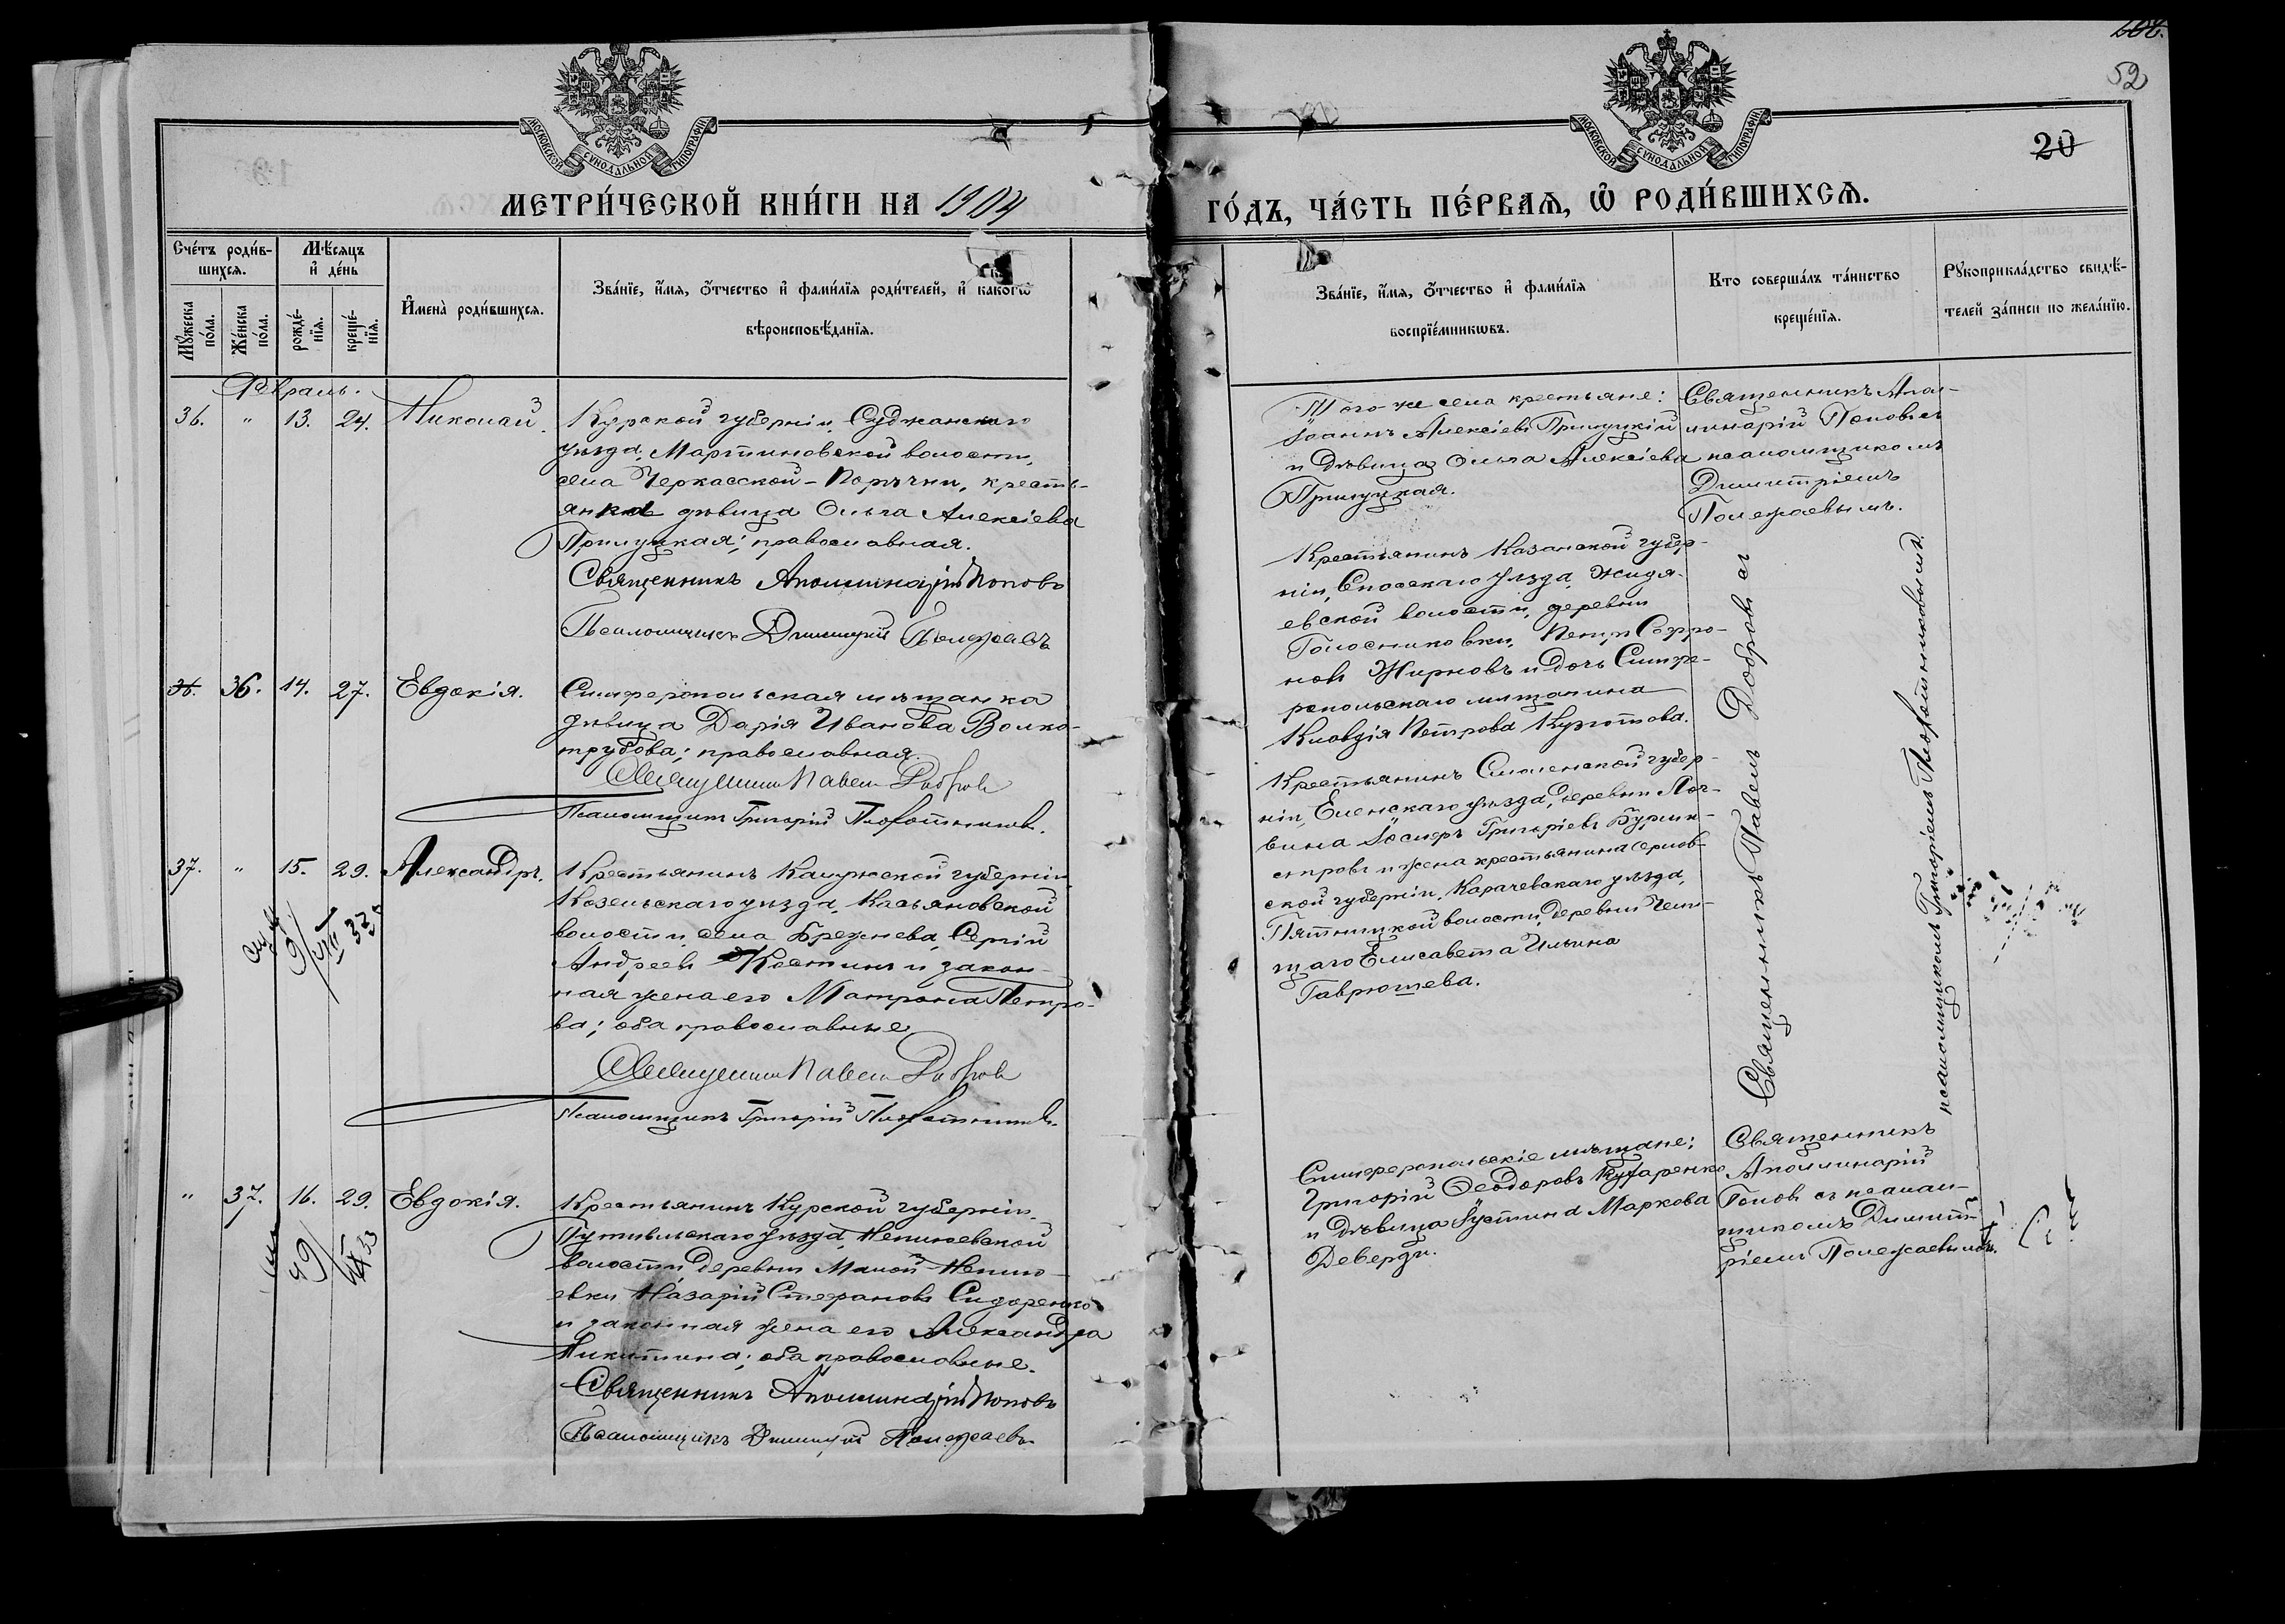 202.
52
20
МОСКОВСКОЙ СѴНОДАЛЬНОЙ ТИПОГРАФІИ
МОСКОВСКОЙ СѴНОДАЛЬНОЙ ТИПОГРАФІИ
МЕТРИ́ЧЕСКОЙ КНИ́ГИ НА 1904
ГО́ДЪ, ЧА́СТЬ ПЕ́РВАЯ, Ѽ РОДИ́ВШИХСЯ.
Сче́тъ роди́в-
шихся.
Мѣ́сяцъ
и҆ де́нь
Мꙋ́жеска по́ла.
Же́нска по́ла.
рожде́-нїя.
креще́-нїя.
И҆мена̀ роди́вшихся.
Зва́нїе, и҆́мя, ѻ҆́тчество и҆ фами́лїя роди́телей, и҆ какогѡ
вѣроисповѣ́данїя.
Зва́нїе, и҆́мя, ѻ҆́тчество и҆ фами́лїя
воспрїе́мникѡвъ.
Кто соверша́лъ та́инство
креще́нїя.
Рꙋкоприкла́дство свидѣ́-
телей за́писи по жела́нїю.
Февраль.
36. " 13. 24. Николай.
Курской губерніи, Суджанскаго
уѣзда, Мартиновской волости,
села Черкасской-Порѣчки, кресть-
янка дѣвица Ольга Алексіева
Прилуцкая; православная.
Священникъ Аполлинарій Поповъ
Псаломщикъ Димитрій Полежаевъ
Того же села крестьяне:
Іоаннъ Алексіевъ Прилуцкій
и дѣвица Ольга Алексіева
Прилуцкая.
Священникъ Апол-
линарій Поповъ съ
псаломщикомъ
Димитріемъ
Полежаевымъ.
36. 36. 14. 27. Евдокія.
Симферопольская мѣщанка
дѣвица Дарія Иванова Волко-
трубова; православная.
Священникъ Павелъ Добровъ
Псаломщикъ Григорій Плохотниковъ.
Крестьянинъ Казанской губер-
ніи, Спасскаго уѣзда, Жидя-
евской волости, деревни
Голосниковки, Софро-
новъ Жирновъ и дочь Симфе-
ропольскаго мѣщанина
Клавдія Петрова Куротова.
Священникъ Павелъ Добровъ съ
псаломщикомъ Григоріемъ Плохотниковымъ.
37. " 15. 29. Александръ.
Крестьянинъ Калужской губерніи,
Козельскаго уѣзда, Касьяновской
волости, села Брежнева, Сергій
Андреевъ Костинъ и закон-
ная жена его Матрона Петро-
ва; оба православные.
Священникъ Павелъ Добровъ
Псаломщикъ Григорій Плохотниковъ.
9/VIII 33
Крестьянинъ Смоленской губер-
ніи, Ельнскаго уѣзда, деревни Лог-
вина Іосифъ Григоріевъ
и жена крестьянина Орлов-
ской губерніи, Карачевскаго уѣзда,
Пятницкой волости, деревни
Елисавета Ильина
Гаврюшева.
" 37. 16. 29. Евдокія.
Крестьянинъ Курской губерніи,
Путивльскаго уѣзда, Неплюевской
волости деревни Малой-Неплю-
евки Назарій Стефановъ Сидоренко
и законная жена его Александра
Никитина; оба православные.
Священникъ Аполлинарій Поповъ
Псаломщикъ Димитрій Полежаевъ
Симферопольскіе мѣщане:
Григорій Ѳеодоровъ Кухаренко
и дѣвица Іустина Маркова
Деверди.
Священникъ
Аполлинарій
Поповъ съ псалом-
щикомъ Димит-
ріемъ Полежаевымъ.